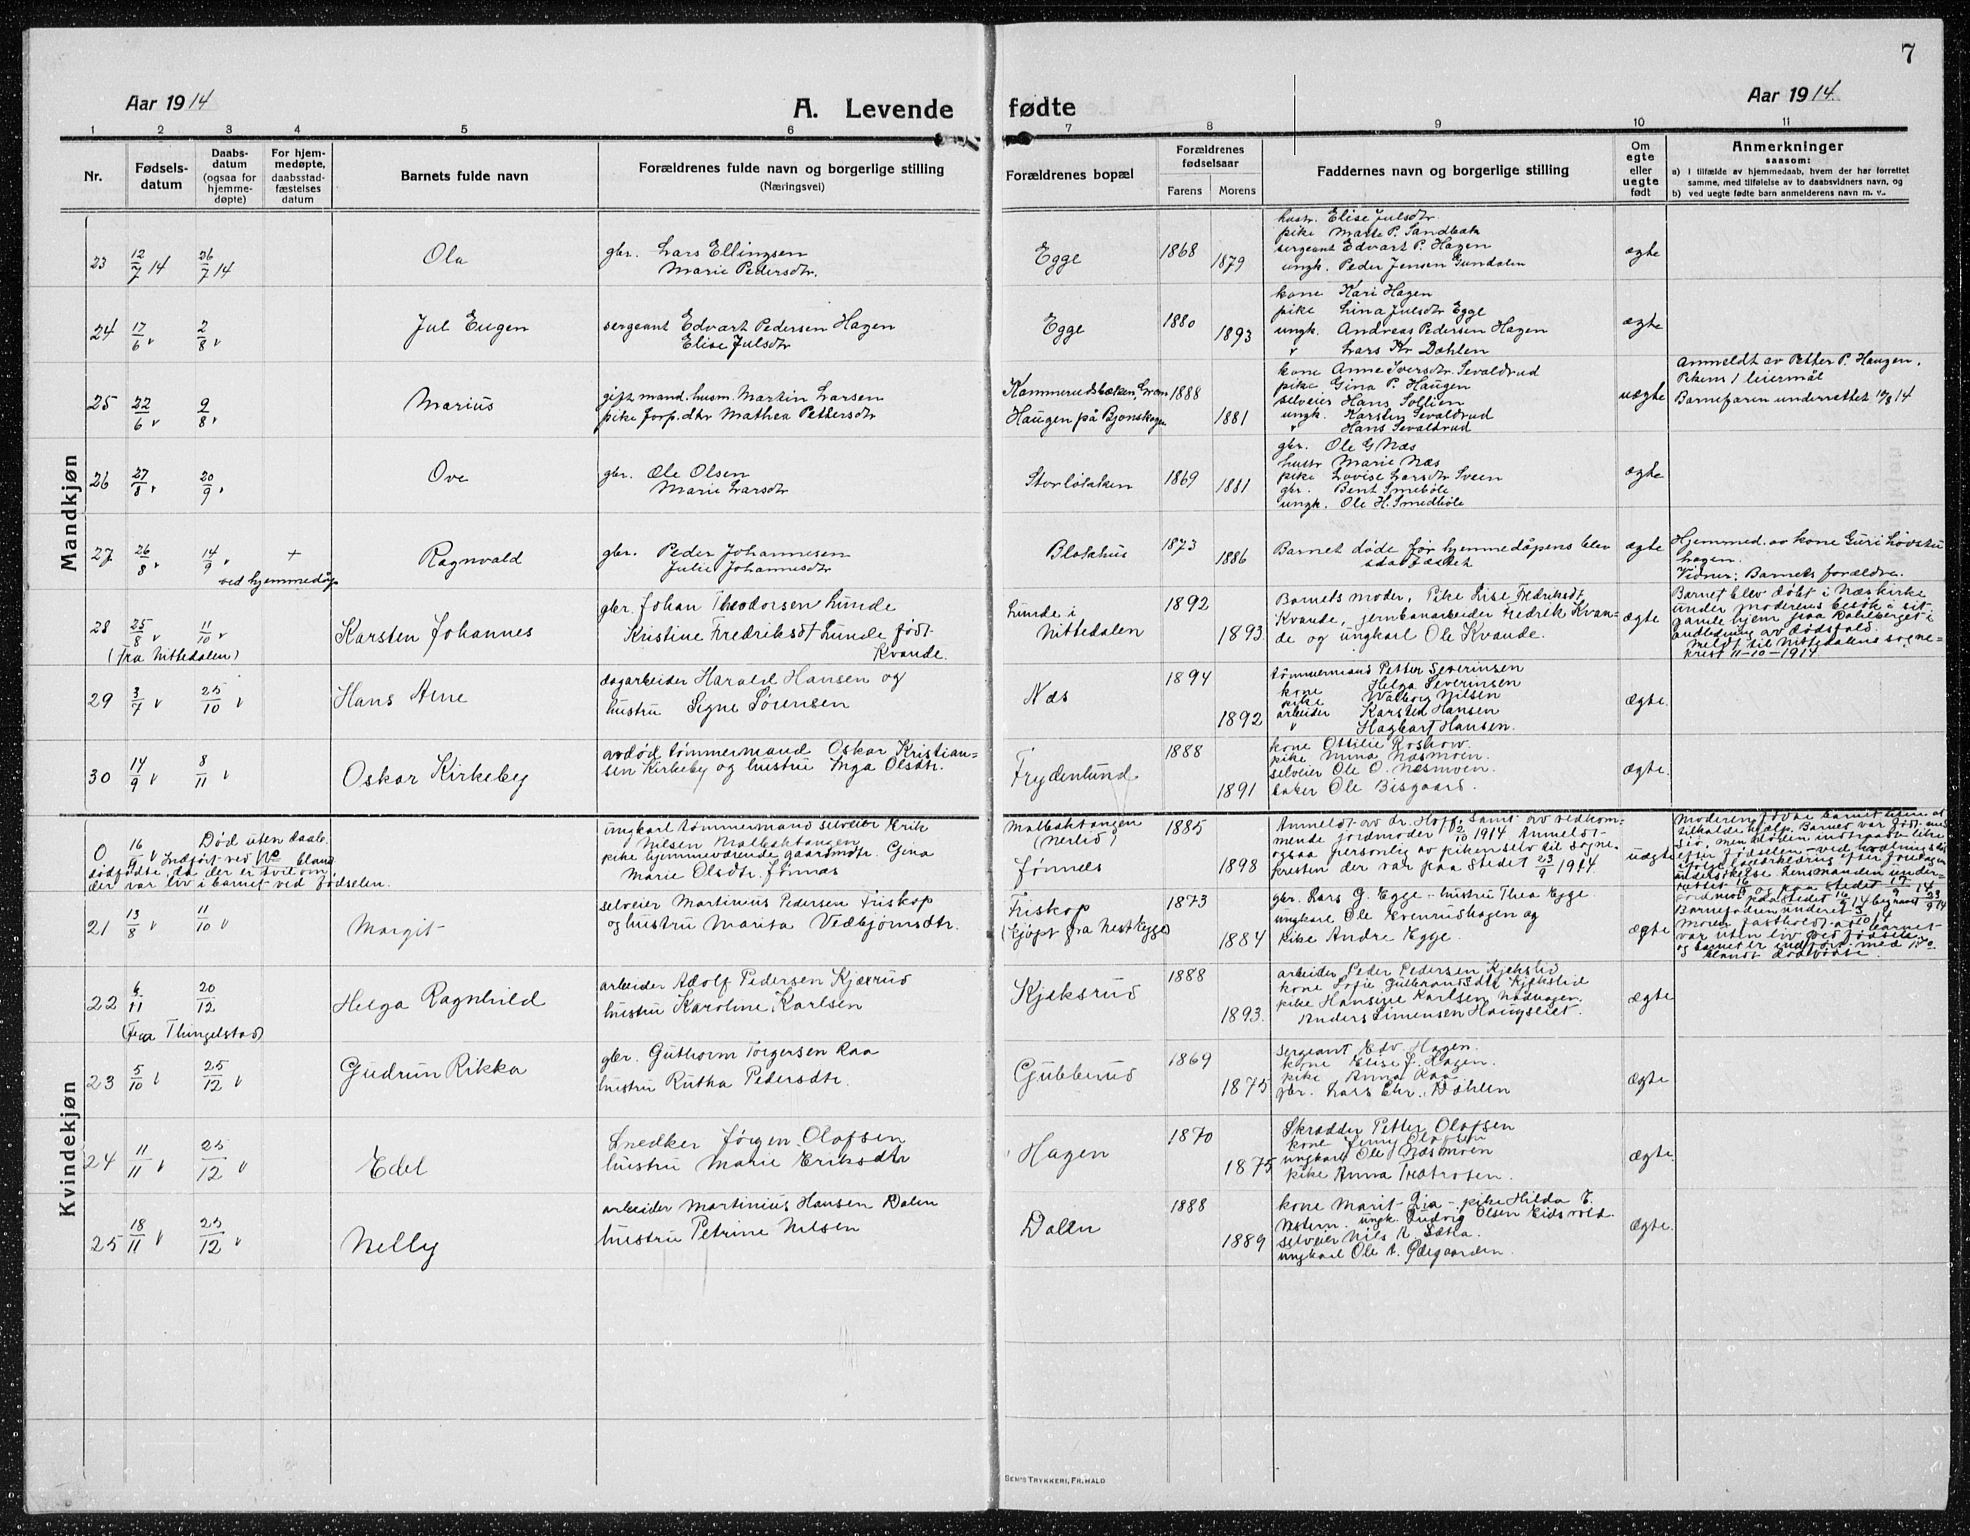 7
Aar 1914
A. Levende fødte
Aar 1914.
1 2 3 4 5 6 7 8 9 10 11
Nr.
Fødsels-
datum
Daabs-
datum
(ogsaa for
hjemme-
døpte)
For hjem-
medøpte,
daabsstad-
fæstelses
datum
Barnets fulde navn
Forældrenes fulde navn og borgerlige stilling
(Næringsvei)
Forældrenes bopæl
Forældrenes
fødselsaar
Farens Morens
Faddernes navn og borgerlige stilling
Om
egte
eller
uegte
født
Anmerkninger
saasom:
a) I tilfælde av hjemmedaab, hvem der har forrettet
samme, med tilføielse av to daabsvidners navn, og
b) ved uegte fødte barn anmelderens navn m. v..
Mandkjøn
23 12/7 14 26/7 14 Ola
gbr. Lars Ellingsen
Marie Pedersdtr.
Egge 1868 1879
hustr. Elise Julsdtr
pike Marte P. Sandbæk
sergeant Edvart P. Hagen
ungk. Peder Jensen Gundalen
ægte
24 17/6 " 2/8 " Jul Eugen
sergeant Edvart Pedersen Hagen
Elise Julsdtr
Egge 1880 1893
kone Kari Hagen
pike Lina Julsdtr Egge
ungk. Andreas Pedersen Hagen
" Lars Kr Dæhlen
ægte
25 22/6 " 9/8 " Marius
gift mand. husm. Martin Larsen
pike forp. dtr Mathea Pettersdtr
Kammerudsbækken, Gran 1888
Haugen på Bjonskogen 1881
kone Anne Iversdtr Sevaldrud
pike Gina P. Haugen
selveier Hans Sollien
ungk. Karsten Sevaldrud
" Hans Sevaldrud
uægte
Anmeldt av Petter P. Haugen.
Pikens 1 leiermål
Barnefaren underrettet 10/8 14
26 27/8 " 20/9 " Ove
gbr. Ole Olsen
Marie Larsdtr
Storløkken 1869 1881
gbr. Ole G Næs
hustr Marie Næs
pike Lovise Larsdtr Sveen
gbr. Bent Smebøle
ungk. Ole H. Smedbøle
ægte
27 26/8 " 14/9 " + Ragnvald
ved hjemmedåp
gbr. Peder Johannesen
Julie Johannesdtr
Blokhus 1873 1886
Barnet døde før hjemmedåpens blev
stadfæstet
ægte
Hjemmed. av kone Guri Løvstu
hagen.
Vidner: Barnets forældre.
28 25/8 " 11/10 " Karsten Johannes
(Fra Nittedalen)
gbr. Johan Theodorsen Lunde
Kristine Fredriksdt Lunde født
Kvande.
Lunde i
Nittedalen
1892 1893
Barnets moder, Pike Lise Fredriksdt
Kvande, jernbanarbeider Fredrik Kvan-
de og ungkarl Ole Kvande.
ægte
Barnet blev døbt i Næs kirke
under moderens besøk i sit
gamle hjem
andledning av dødsfald.
Meldt til Nittedalens sogne-
prest 11-10-1914
29 3/7 " 25/10 " Hans Arne
dagarbeider Harald Hansen og
hustru Signe Sørensen
Næs 1894 1892
tømmermand Petter Severinsen
kone Helga Severinsen
pike Valborg Nilsen
arbeider Karsted Hansen
" Hagbart Hansen.
ægte.
30 14/9 " 8/11 " Oskar Kirkeby
avdød tømmermand Oskar Kristian-
sen Kirkeby og hustru Inga Olsdtr.
Frydenlund 1888 1891
kone Ottilie Roshow.
pike Mina Næsmoen.
selveier Ole O. Næsmoen.
baker Ole Bisgaard.
ægte.
Kvindekjøn
0 16/9 " Død uten daab.
Indført ved No blandt
dødfødte, da der er tvil om,
der var liv i barnet ved fødselen.
ungkarl tømmermand selveier Erik
Nilsen Malbaktangen
pike hjemmeværende gaardmdtr. Gina
Marie Olsdtr. Jønnes
Malbaktangen
(Nerlid)
Jønnes
1885 1898
Anmeldt av dr. Hoff. Samt av vedkom-
mende jordmoder 2/10 1914 Anmeldt
ogsaa personlig av piken selv til sogne-
presten der var paa stedet 23/9 1914.
uægte
21 13/8 " 11/10 " Margit
selveier Martinius Pedersen Friskop
og hustru Marita Vedbjørnsdtr.
Friskop
(kjøpt fra Nest Egge)
1873 1884
gbr. Lars G. Egge - hustru Thea Egge
ungkarl Ole Evenrudhagen og
pike Andre Egge.
ægte
22 6/11 20/12 " Helga Ragnhild
(Fra Thingelstad)
arbeider Adolf Pedersen Kjexrud
hustru Karoline Karlsen
Kjeksrud 1888 1893.
arbeider Peder Pedersen Kjekslid
kone Sofie Gulbrandsdtr Kjekslid
pike Hansine Karlsen
Anders Simensen
ægte
23 5/10 " 25/12 " Gudrun Rikka
gbr. Guthorm Torgersen Raa
hustru Rutha Pedersdtr.
Gubberud 1869 1875.
sergeant Edv. Hagen.
kone Elise J. Hagen.
pike Anna Raa.
gbr. Lars Chr. Dæhlen
ægte
24 11/11 " 25/12 " Edel
Snedker Jørgen Olafsen
hustru Marie Eriksdtr
Hagen 1870 1875
Skrædder Petter Olafsen
kone Jenny Olafsen
ungkarl Ole Næsmoen
pike Anna
ægte.
25 18/11 " 25/12 " Nelly
arbeider Martinius Hansen Dalen
hustru Petrine Nilsen
Dalen 1888 1889
kone Marit Lia - pike Hilda E.
ungk. Ludvig Olsen Eidsvold
selveier Nils N. Sætha.
ungkarl Ole A.
ægte.
SEM'S TRYKKERI, FR.HALD